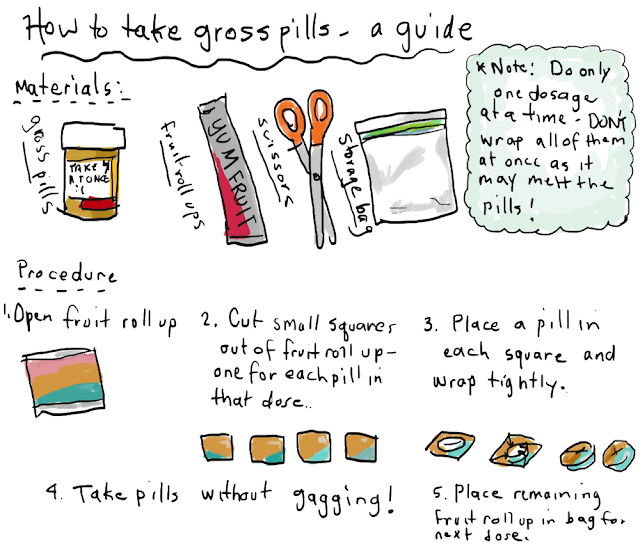 How to take gross pills - a guide
Materials:
gross pills
TAKE 4
AT ONCE
:(
fruit roll ups
YUM FRUIT
scissors
storage bag
*Note: Do only
one dosage
at a time - DON'T
wrap all of them
at once as it
may melt the
pills!
Procedure
1. Open fruit roll up
2. Cut small squares
out of fruit roll up -
one for each pill in
that dose..
3. Place a pill in
each square and
wrap tightly.
4. Take pills without gagging!
5. Place remaining
fruit roll up in bag for
next dose.